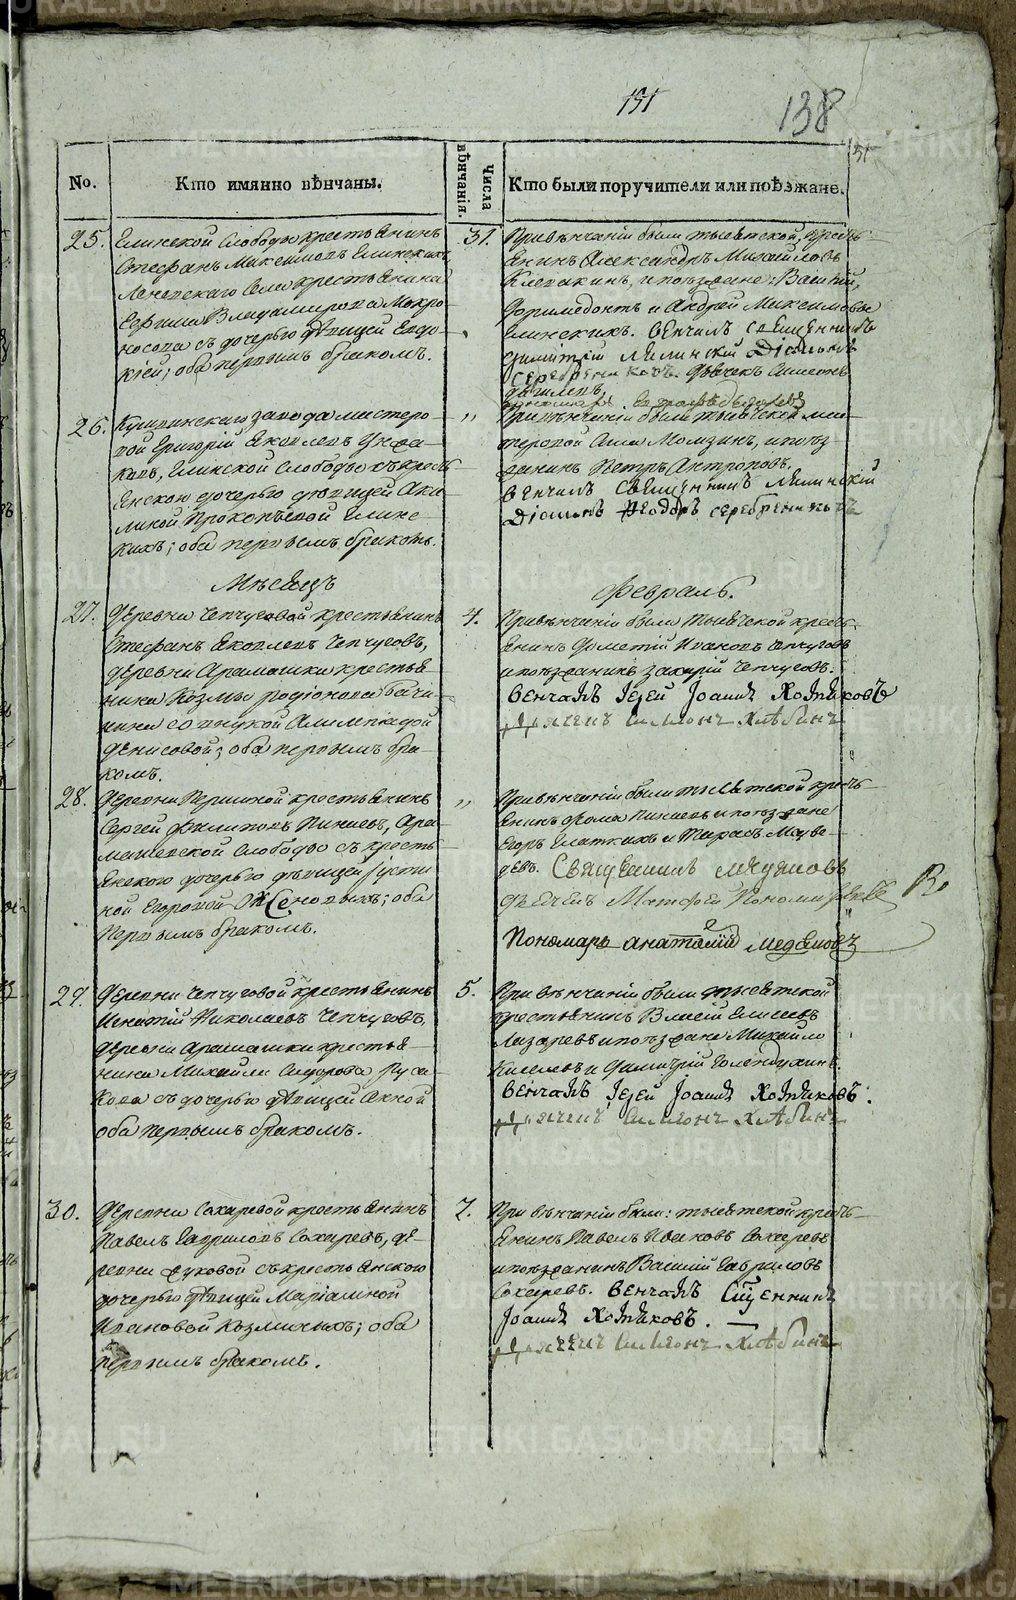 151
138
No.
Кто имянно вѣнчаны.
Числа вѣнчанія.
Кто были поручители или поѣзжане.
25.
Елинской Слободы крестьянинъ
Стефанъ Максимовъ Елинскихъ,
Леневскаго села крестьянина
Ефима Владимирова Мокро-
носова съ дочерью дѣвицей Евдо-
кіей; оба первымъ бракомъ.
31.
При вѣнчаніи были тысяцкой кресть-
янинъ Александръ Михайловъ
Клевакинъ, и поѣзжане: Василій,
и Андрей Максимовы
Елинскихъ. Венчалъ священникъ
Димитрій Лялинскій Діаконъ
Серебрениковъ. Дьячекъ Симеонъ
26.
Кушвинскаго завода мастеро-
вой Григорій Яковлевъ
Елинской Слободы съ кресть-
янскою дочерью дѣвицей Аки-
линой Прокопьевой Елинс-
кихъ; оба первымъ бракомъ.
"
При вѣнчаніи были тысяцкой мас-
теровой Мамзинъ, и поѣз-
жанинъ Петръ Антроповъ.
Венчалъ Священникъ Лялинскій
Діаконъ Феодоръ Серебрениковъ
Мѣсяцъ
Февраль.
27.
Деревни Чепчуговой крестьянинъ
Стефанъ Яковлевъ Чепчуговъ,
деревни Арамашки крестья-
нина Козмы Родіонова Бачи-
нина со внукой Алимпіадой
Денисовой; оба первымъ бра-
комъ.
4.
При вѣнчаніи были тысяцкой кресть-
янинъ Дометій Ивановъ Чепчуговъ
и поѣзжанинъ Захарій Чепчуговъ.
Венчалъ Іерей Іоаннъ Хомяковъ
Дьячекъ Симеонъ Хлѣбинъ
28.
Деревни Першиной крестьянинъ
Сергей Филиповъ Пинаевъ, Ара-
машевской Слободы съ кресть-
янскою дочерью дѣвицей Іусти-
ной Егоровой Ожсеновыхъ; оба
первымъ бракомъ.
"
При вѣнчаніи были тысяцкой кресть-
янинъ Фома Пинаевъ и поѣзжане
Егоръ и Тарасъ Медве-
девъ. Священникъ Медяковъ
Дьячекъ Матфей Пономаревъ
Пономарь Анатолій Медяковъ
29.
Деревни Чепчуговой крестьянинъ
Игнатій Николаевъ Чепчуговъ,
деревни Арамашки крестья-
нина Михаила Сидорова Руса-
кова съ дочерью дѣвицей Анной
оба первымъ бракомъ.
5.
При вѣнчаніи были тысяцкой
крестьянинъ Елисеевъ
Лазаревъ и поѣзжане Михайло
Киселевъ и Димитрій Голендухинъ.
Венчалъ Іерей Іоаннъ Хомяковъ.
Дьячекъ Симеонъ Хлѣбинъ
30.
Деревни Сохаревой крестьянинъ
Павелъ Гавриловъ Сохаревъ, де-
ревни Луковой съ крестьянскою
дочерью дѣвицей Маріамной
Ивановой Козминыхъ; оба
первымъ бракомъ.
7.
При вѣнчаніи были: тысяцкой кресть-
янинъ Павелъ Ивановъ Сохаревъ
и поѣзжанинъ Василій Гавриловъ
Сохаревъ. Венчалъ Сщенникъ
Іоаннъ Хомяковъ.
Дьячекъ Симеонъ Хлѣбинъ
METRIKI.GASO-URAL.RU